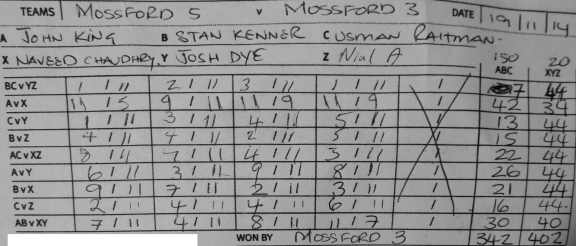 TEAMS MOSSFORD 5 V MOSSFORD 3 DATE 19/11/14
A JOHN KING B STAN KENNER C USMAN RAITMAN.
X NAVEED CHAUDHRY Y JOSH DYE Z Nial A 150 20
ABC XYZ
BCvYZ 1 / 11 2 / 11 3 / 11 1 / 11 / 7 44
AvX 11 / 5 9 / 11 11 / 9 11 / 9 / 42 34
CvY 1 / 11 3 / 11 4 / 11 5 / 11 / 13 44
BvZ 4 / 11 4 / 11 2 / 11 5 / 11 / 15 44
ACvXZ 8 / 11 7 / 11 4 / 11 3 / 11 / 22 44
AvY 6 / 11 3 / 11 9 / 11 8 / 11 / 26 44
BvX 9 / 11 7 / 11 2 / 11 3 / 11 / 21 44
CvZ 2 / 11 4 / 11 4 / 11 6 / 11 / 16 44.
ABvXY 7 / 11 4 / 11 8 / 11 11 / 7 / 30 40
WON BY MOSSFORD 3 342 402